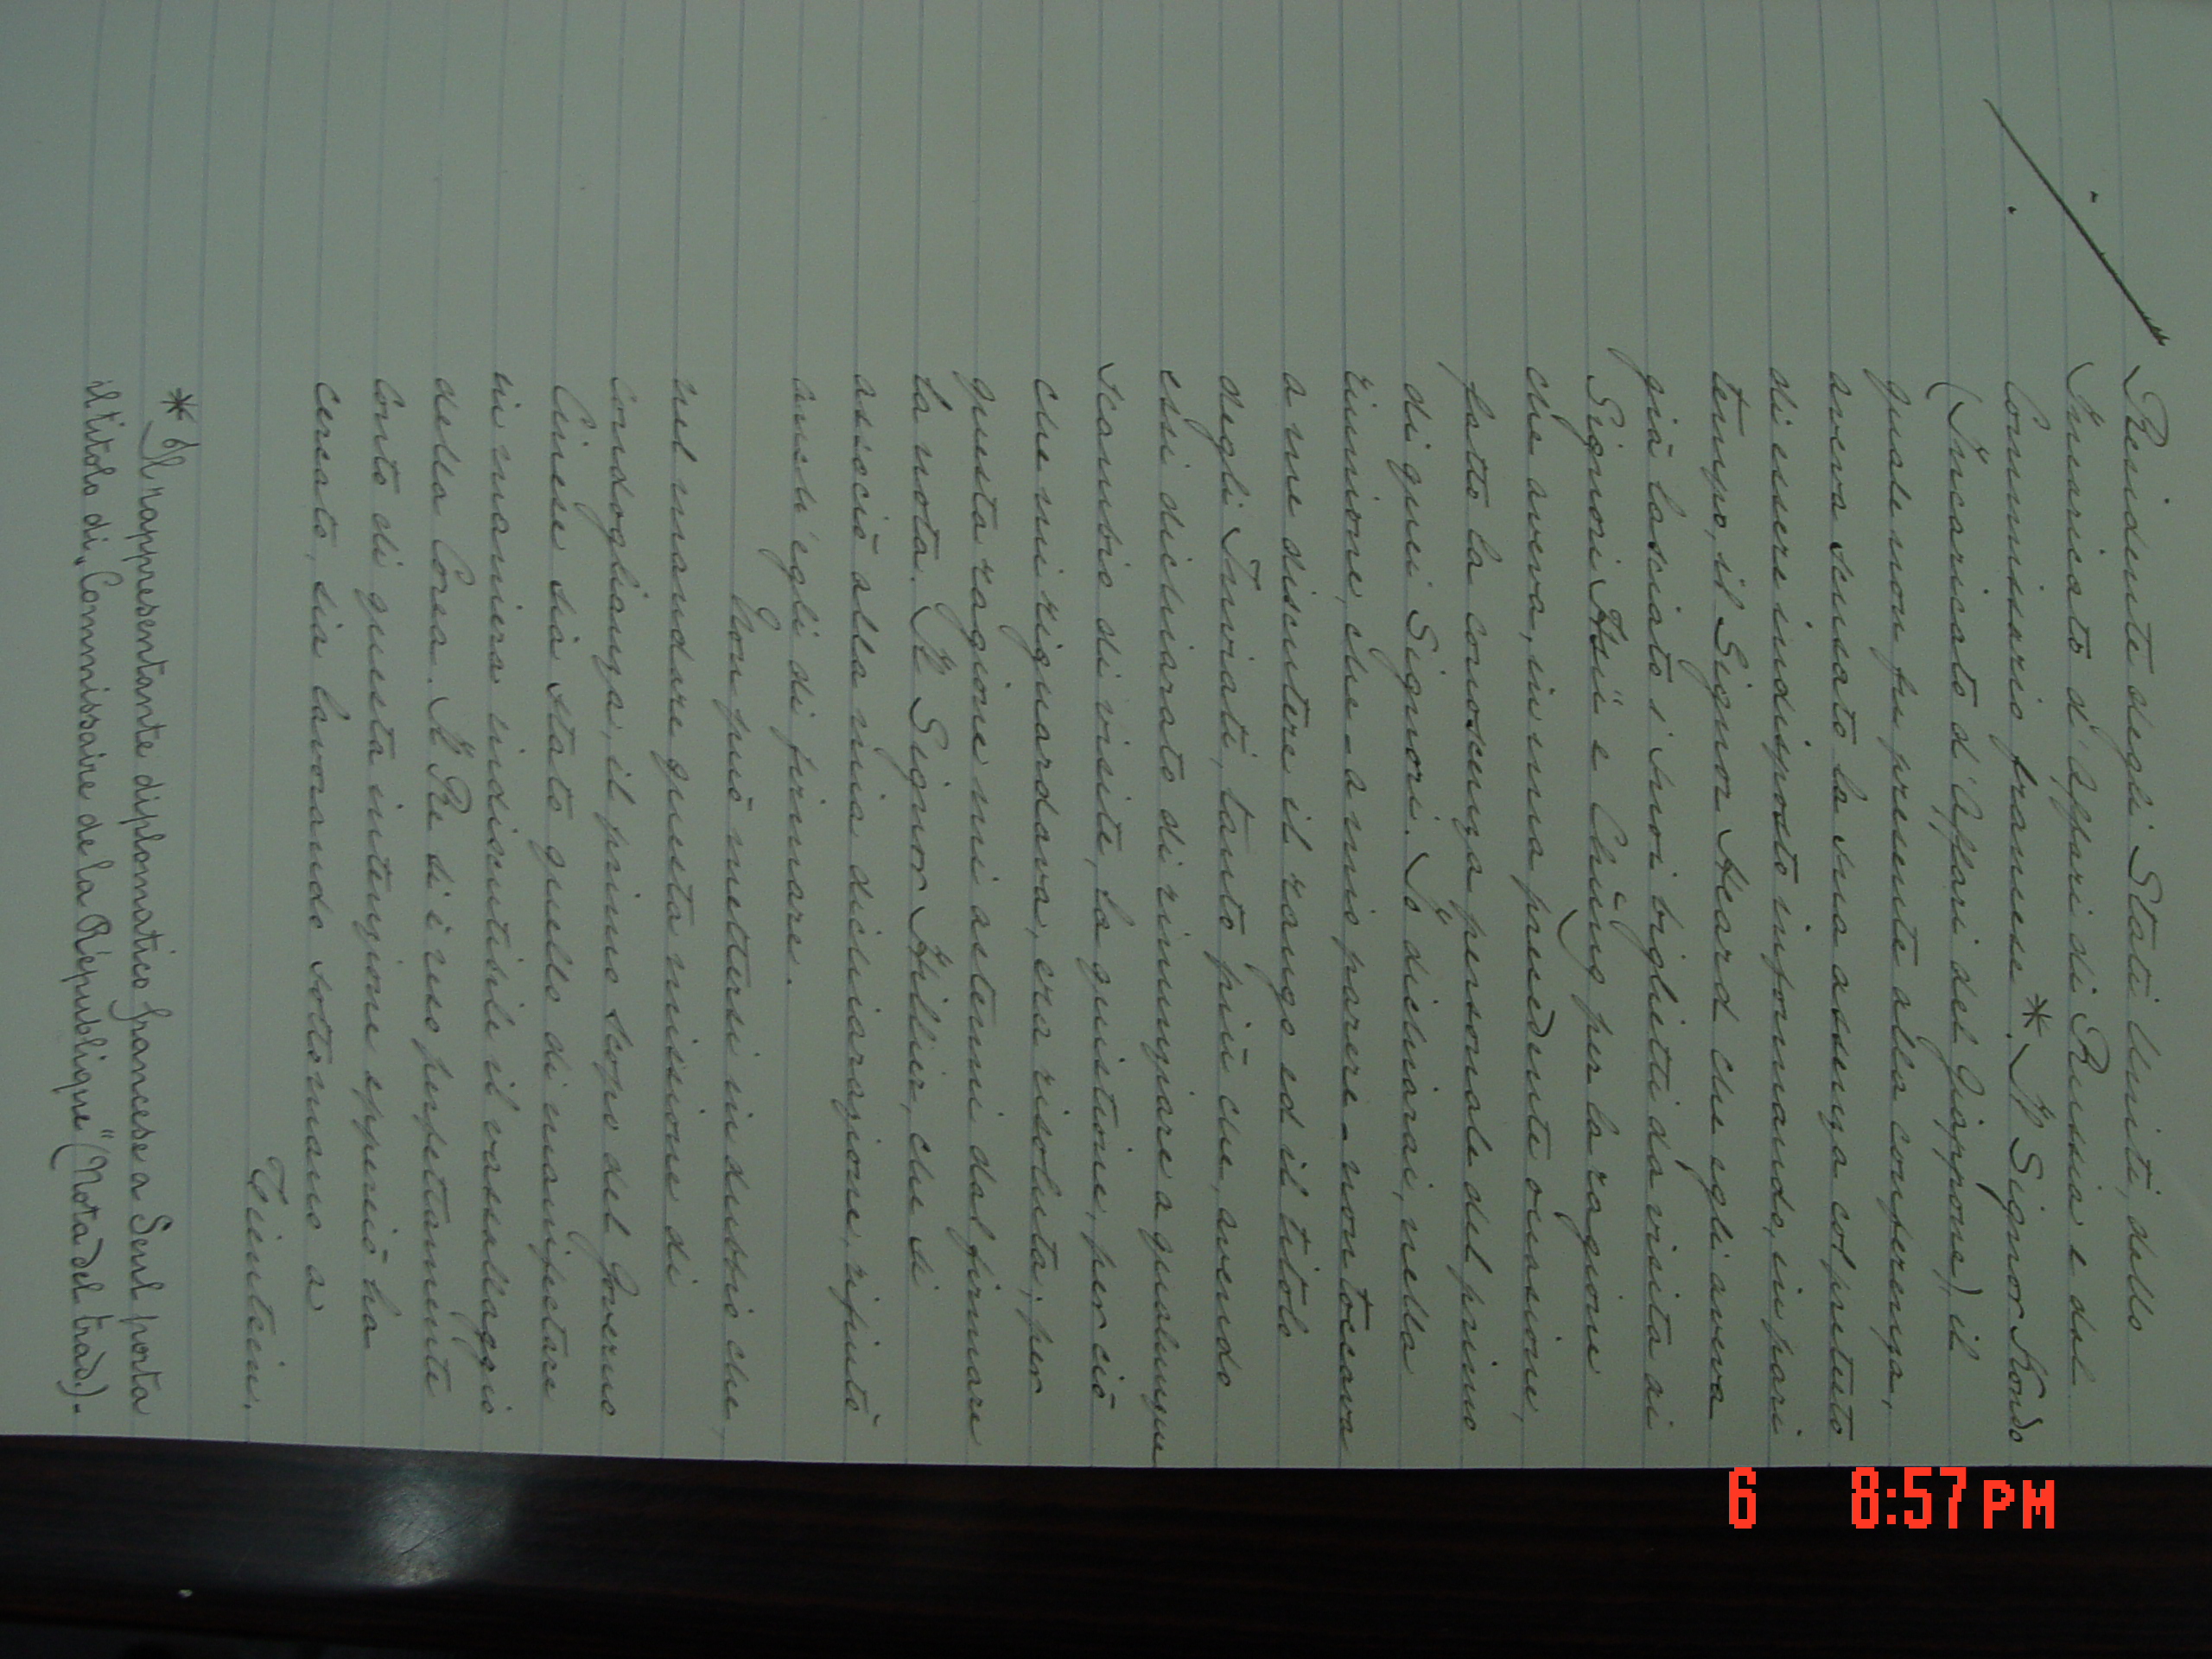 Residente degli Stati Uniti, dallo
Incaricato d'Affari di Russia e dal
Commissario francese *. Il Signor Kondo
(Incaricato d'Affari del Giappone), il
quale non fu presente alla conferenza,
aveva scusato la sua assenza col pretesto
di essere indisposto informando, in pari
tempo, il Signor Heard che egli aveva
già lasciato i suoi biglietti da visita ai
Signori Hsü e Chüng per la ragione
che aveva, in una precedente occasione,
fatto la conoscenza personale del primo
di quei Signori. Io dichiarai, nella
riunione, che - a mio parere - non toccava
a me discutere il rango ed il titolo
degli Inviati, tanto più che, avendo
essi dichiarato di rinunziare a qualunque
scambio di visite, la quistione, per ciò
che mi riguardava, era risoluta; per
questa ragione mi astenni dal firmare
la nota. Il Signor Hillier, che si
associò alla mia dichiarazione, rifiutò
anch'egli di firmare.
Non può mettersi in dubbio che,
nel mandare questa missione di
condoglianza, il primo scopo del Governo
Cinese sia stato quello di manifestare
in maniera indiscutibile il vassallaggio
della Corea. Il Re si è reso perfettamente
conto di questa intenzione epperciò ha
cercato, sia lavorando sottomano a
Tientsin,
* Il rappresentante diplomatico francese a Seul porta
il titolo di „Commissaire de la République" (Nota del trad.)-
6 8:57 PM